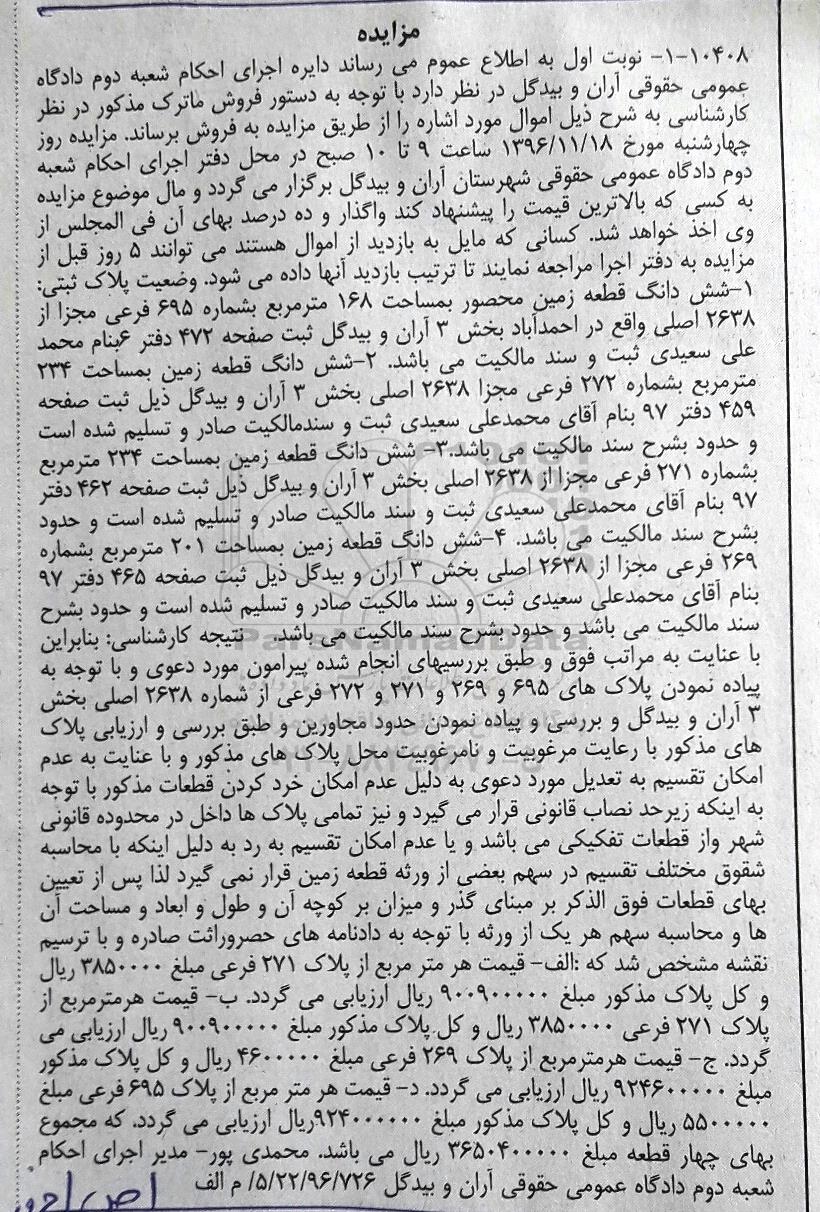 مزایده
۱-۱۰۴۰۸- نوبت اول به اطلاع عموم می رساند دایره اجرای احکام شعبه دوم دادگاه
عمومی حقوقی آران و بیدگل در نظر دارد با توجه به دستور فروش ماترک مذکور در نظر
کارشناسی به شرح ذیل اموال مورد اشاره را از طریق مزایده به فروش برساند. مزایده روز
چهارشنبه مورخ ۱۳۹۶/۱۱/۱۸ ساعت ۹ تا ۱۰ صبح در محل دفتر اجرای احکام شعبه
دوم دادگاه عمومی حقوقی شهرستان آران و بیدگل برگزار می گردد و مال موضوع مزایده
به کسی که بالاترین قیمت را پیشنهاد کند واگذار و ده درصد بهای آن فی المجلس از
وی اخذ خواهد شد. کسانی که مایل به بازدید از اموال هستند می توانند ۵ روز قبل از
مزایده به دفتر اجرا مراجعه نمایند تا ترتیب بازدید آنها داده می شود. وضعیت پلاک ثبتی:
۱-شش دانگ قطعه زمین محصور بمساحت ۱۶۸ مترمربع بشماره ۶۹۵ فرعی مجزا از
۲۶۳۸ اصلی واقع در احمدآباد بخش ۳ آران و بیدگل ثبت صفحه ۴۷۲ دفتر ۶بنام محمد
علی سعیدی ثبت و سند مالکیت می باشد. ۲-شش دانگ قطعه زمین بمساحت ۲۳۴
مترمربع بشماره ۲۷۲ فرعی مجزا ۲۶۳۸ اصلی بخش ۳ آران و بیدگل ذیل ثبت صفحه
۴۵۹ دفتر ۹۷ بنام آقای محمدعلی سعیدی ثبت و سندمالکیت صادر و تسلیم شده است
و حدود بشرح سند مالکیت می باشد.۳- شش دانگ قطعه زمین بمساحت ۲۳۴ مترمربع
بشماره ۲۷۱ فرعی مجزا از ۲۶۳۸ اصلی بخش ۳ آران و بیدگل ذیل ثبت صفحه ۴۶۲ دفتر
۹۷ بنام آقای محمدعلی سعیدی ثبت و سند مالکیت صادر و تسلیم شده است و حدود
بشرح سند مالکیت می باشد. ۴-شش دانگ قطعه زمین بمساحت ۲۰۱ مترمربع بشماره
۲۶۹ فرعی مجزا از ۲۶۳۸ اصلی بخش ۳ آران و بیدگل ذیل ثبت صفحه ۴۶۵ دفتر ۹۷
بنام آقای محمدعلی سعیدی ثبت و سند مالکیت صادر و تسلیم شده است و حدود بشرح
سند مالکیت می باشد و حدود بشرح سند مالکیت می باشد. نتیجه کارشناسی: بنابراین
ParsNamadData
با عنایت به مراتب فوق و طبق بررسیهای انجام شده پیرامون مورد دعوی و با توجه به
پیاده نمودن پلاک های ۶۹۵ و ۲۶۹ و ۲۷۱ و ۲۷۲ فرعی از شماره ۲۶۳۸ اصلی بخش
۳ آران و بیدگل و بررسی و پیاده نمودن حدود مجاورین و طبق بررسی و ارزیابی پلاک
های مذکور با رعایت مرغوبیت و نامرغوبیت محل پلاک های مذکور و با عنایت به عدم
امکان تقسیم به تعدیل مورد دعوی به دلیل عدم امکان خرد کردن قطعات مذکور با توجه
به اینکه زیرحد نصاب قانونی قرار می گیرد و نیز تمامی پلاک ها داخل در محدوده قانونی
شهر واز قطعات تفکیکی می باشد و یا عدم امکان تقسیم به رد به دلیل اینکه با محاسبه
شقوق مختلف تقسیم در سهم بعضی از ورثه قطعه زمین قرار نمی گیرد لذا پس از تعیین
بهای قطعات فوق الذکر بر مبنای گذر و میزان بر کوچه آن و طول و ابعاد و مساحت آن
ها و محاسبه سهم هر یک از ورثه با توجه به دادنامه های حصروراثت صادره و با ترسیم
نقشه مشخص شد که :الف- قیمت هر متر مربع از پلاک ۲۷۱ فرعی مبلغ ۳۸۵۰۰۰۰ ریال
و کل پلاک مذکور مبلغ ۹۰۰۹۰۰۰۰۰ ریال ارزیابی می گردد. ب- قیمت هرمترمربع از
پلاک ۲۷۱ فرعی ۳۸۵۰۰۰۰ ریال و کل پلاک مذکور مبلغ ۹۰۰۹۰۰۰۰۰ ریال ارزیابی می
گردد. ج- قیمت هرمترمربع از پلاک ۲۶۹ فرعی مبلغ ۴۶۰۰۰۰۰ ریال و کل پلاک مذکور
مبلغ ۹۲۴۶۰۰۰۰۰ ریال ارزیابی می گردد. د- قیمت هر متر مربع از پلاک ۶۹۵ فرعی مبلغ
۵۵۰۰۰۰۰ ریال و کل پلاک مذکور مبلغ ۹۲۴۰۰۰۰۰۰ریال ارزیابی می گردد. که مجموع
بهای چهار قطعه مبلغ ۳۶۵۰۴۰۰۰۰۰ ریال می باشد. محمدی پور- مدیر اجرای احکام
شعبه دوم دادگاه عمومی حقوقی آران و بیدگل ۵/۲۲/۹۶/۷۲۶/ م الف